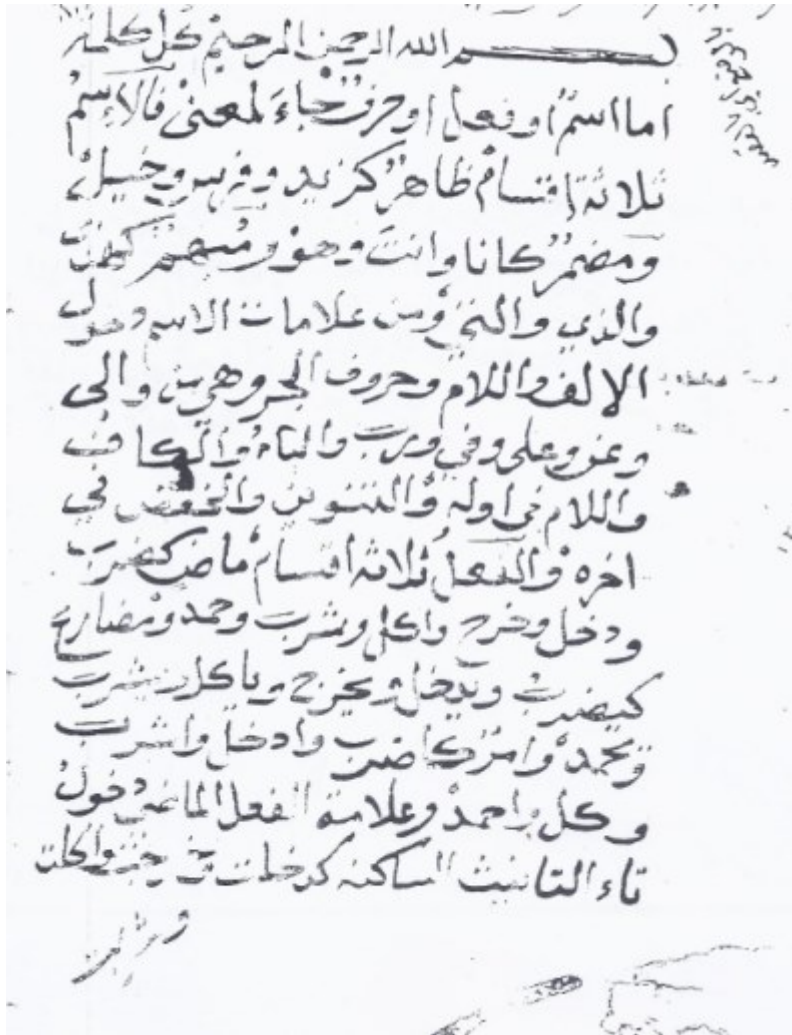 بسم الله الرحمن الرحيم كل كلمة
اما اسمٌ او فعل او حرف جاءَ لمعنىً فالاسمُ
ثلاثة اقسام ظاهرٌ كزيد وفرس وخيل
ومضمرٌ كانا وانتَ وهو ومبهم
والذي والتي ومن علامات الاسم دخول
الالف واللام وحروف الجر وهي من والى
وعن وعلى وفي ورب والباء والكاف
واللام في اوله والتنوين والخفض في
اخره والفعل ثلاثة اقسام ماض كضرب
ودخل وخرج واكل وشرب وحمد ومضارع
كيضرب ويدخل ويخرج وياكل ويشرب
ويحمد وامر كاضرب وادخل واشرب
وكل واحمد وعلامة الفعل الماضي دخول
تاء التانيث الساكنة كدخلت وخرجت واكلت